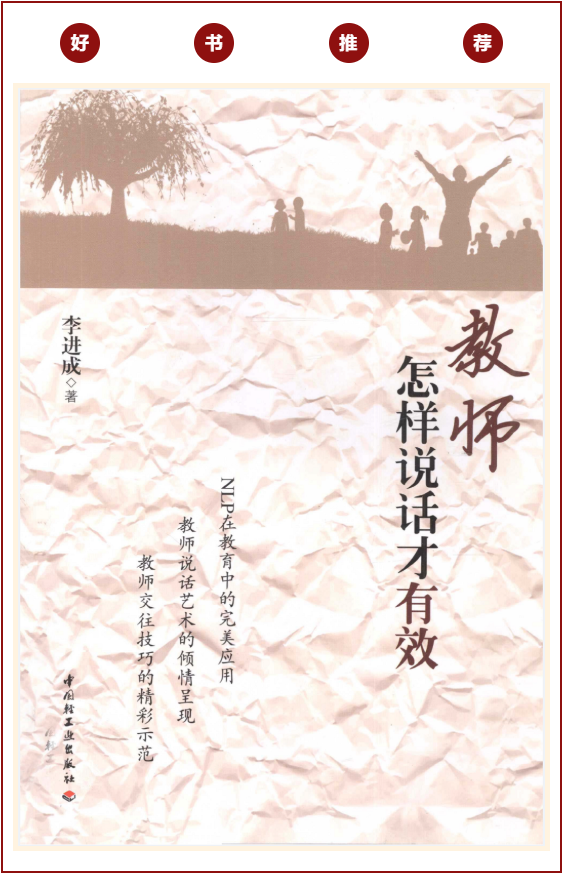 好书推荐
教师
怎样说话才有效
李进成◇著
NLP在教育中的完美应用
教师说话艺术的倾情呈现
教师交往技巧的精彩示范
中国轻工业出版社